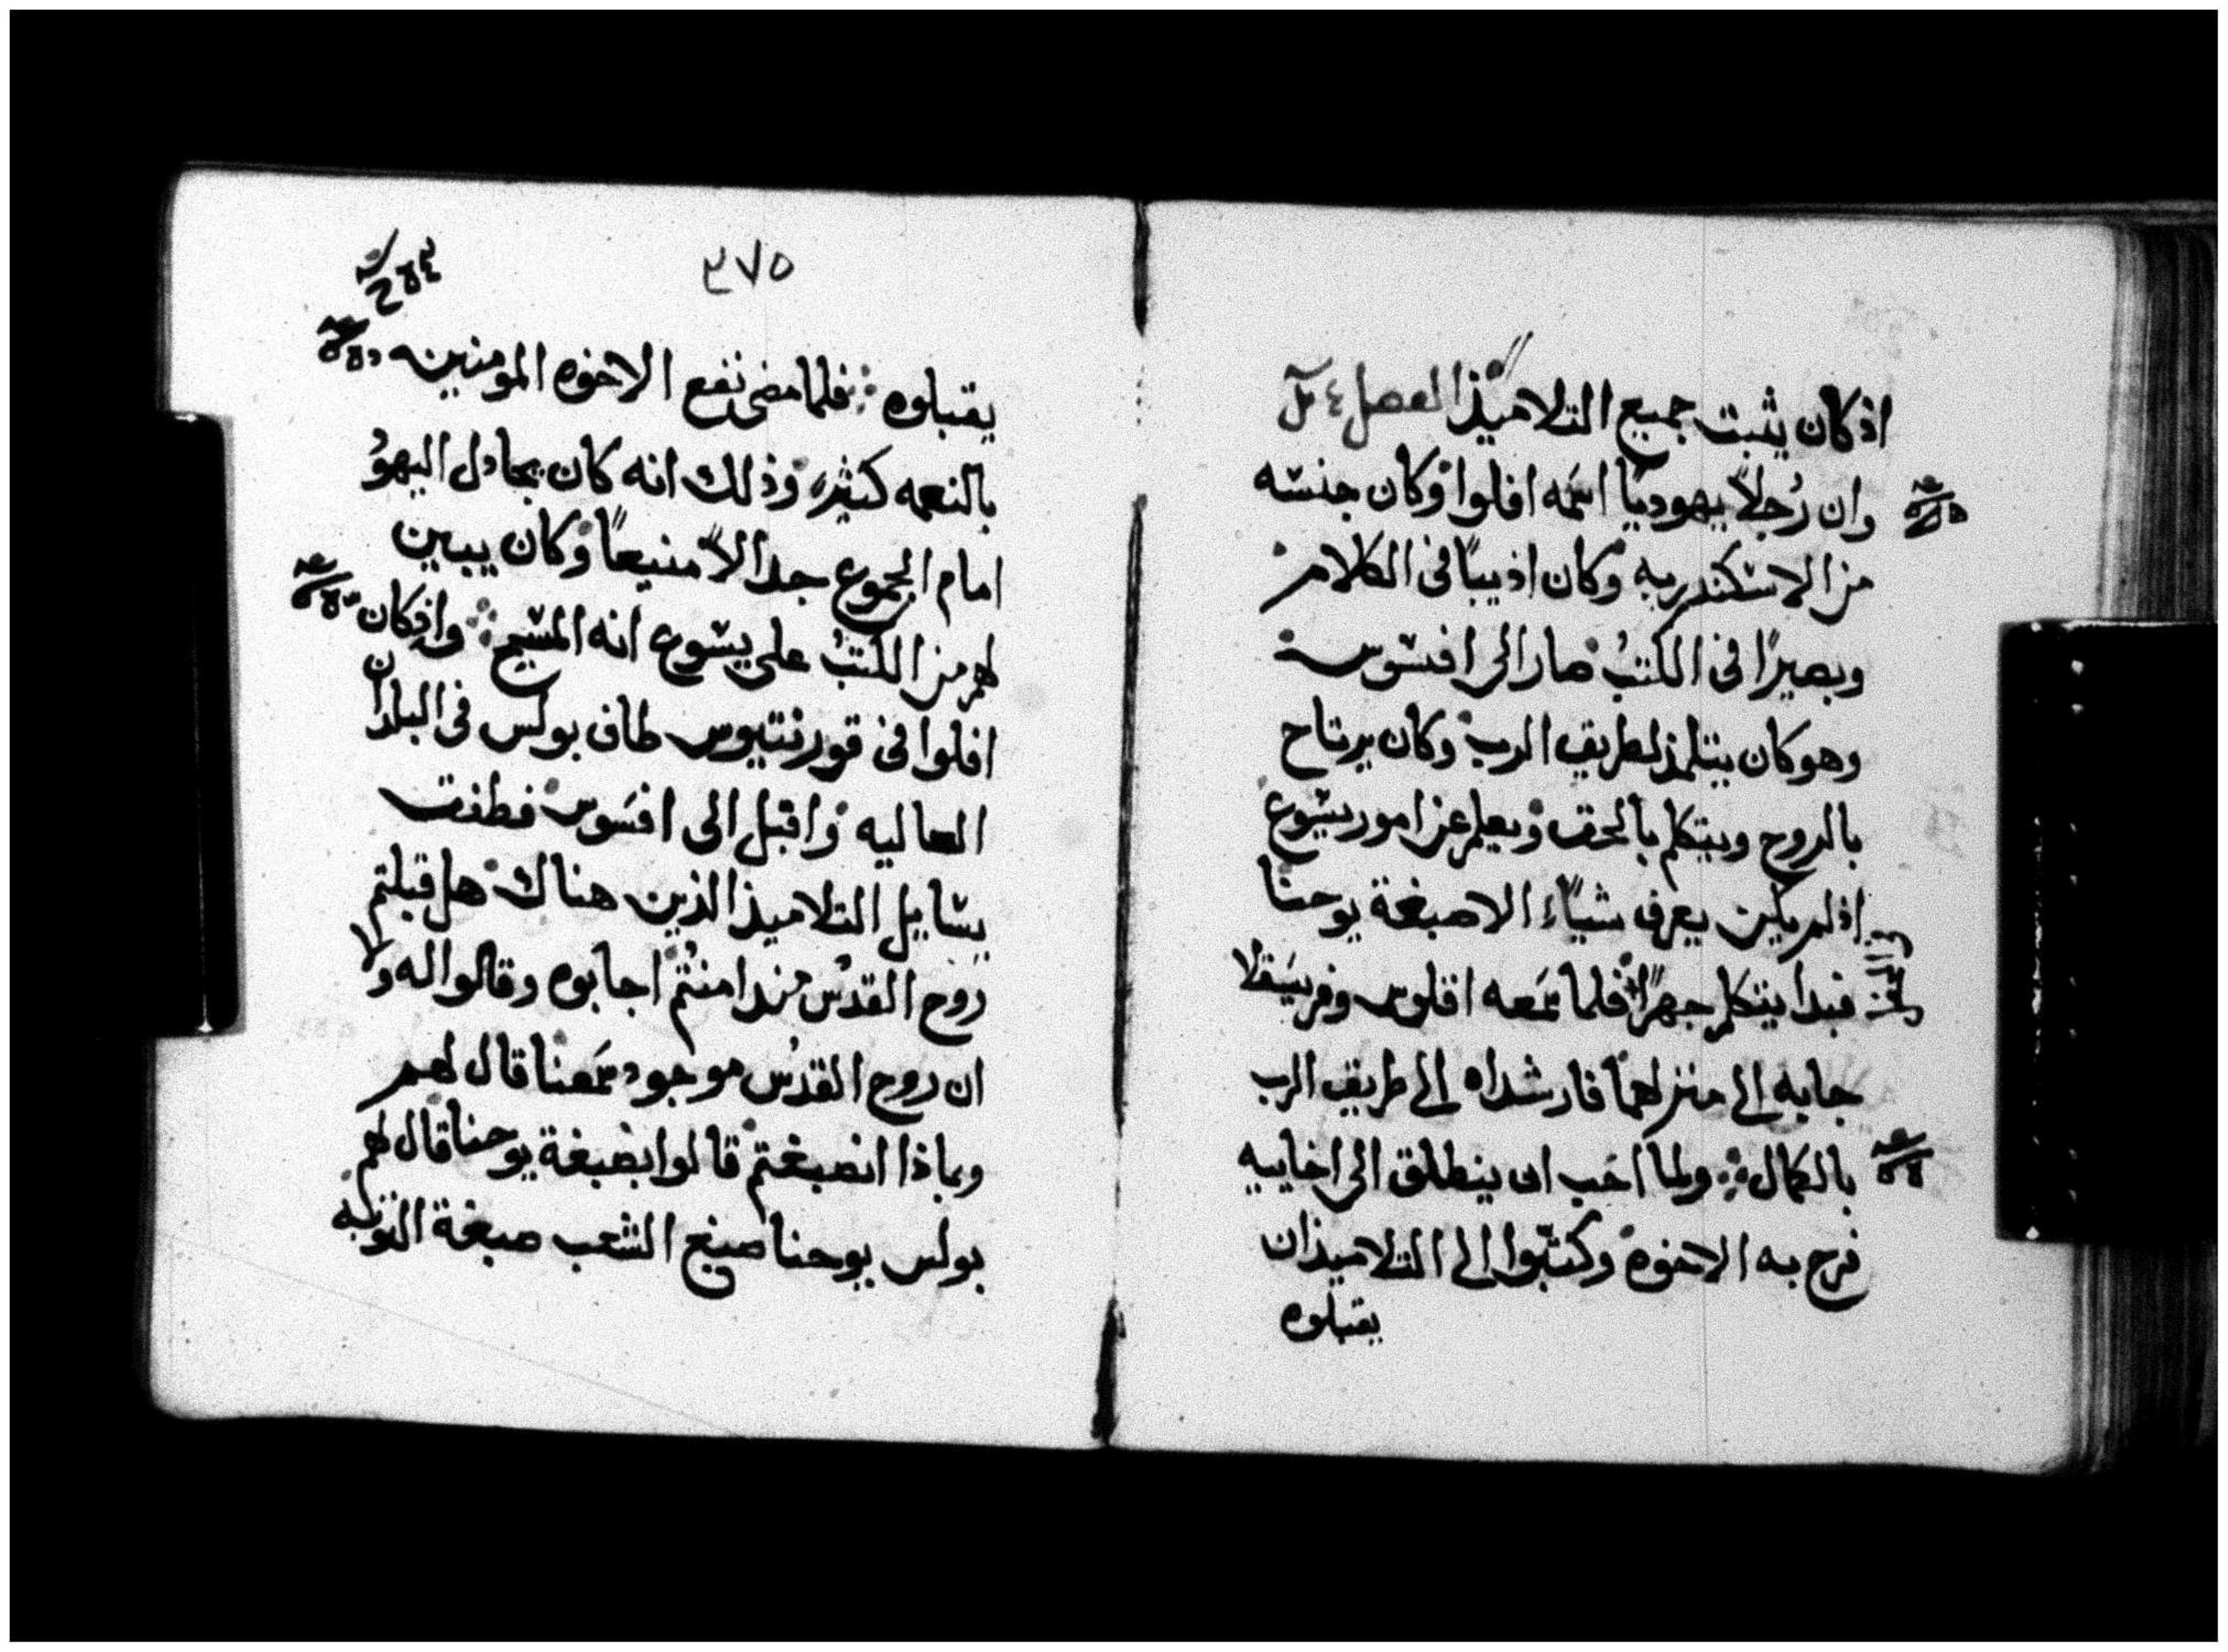 اذ كان يثبت جميع التلاميذ الفصل
وان رُجلاً يهوديًا اسمه افلوا وكان جنسه
من الاسكندريه وكان اديبًا فى الكلام
وبصيرًا فى الكتب صار الى افسوس
وهو كان يتلمذ لطريق الرب وكان يرتاح
بالروح ويتكلم بالحق ويعلم عن امور يسوع
اذ لم يكن يعرف شياً الا صبغة يوحنا
فبدا يتكلم جهرًا فلما سمعه اقلوس وفريسقلا
جابه الى منزلهما فارشداه الى طريق الرب
بالكمال ولما احب ان ينطلق الى اخاييه
فرح به الاخوه وكتبوا الى التلاميذ ان
يقبلوه
٣٧٥
يقبلوه فلما مضى نفع الاخوه المومنين
بالنعمه كثيرا وذلك انه كان يجادل اليهو
امام الجموع جدالاً منيعًا وكان يبين
لهم من الكتب على يسوع انه المسيح واذ كان
افلوا فى قورنتيوس طاف بولس فى البلدان
العاليه واقبل الى افسوس فطفق
يسايل التلاميذ الذين هناك هل قبلتم
روح القدس منذ امنتم اجابوه وقالوا له ولا
ان روح القدس موجود سمعنا قال لهم
وبماذا انصبغتم قالوا بصبغة يوحنا قال لهم
بولس يوحنا صبغ الشعب صبغة التوبه